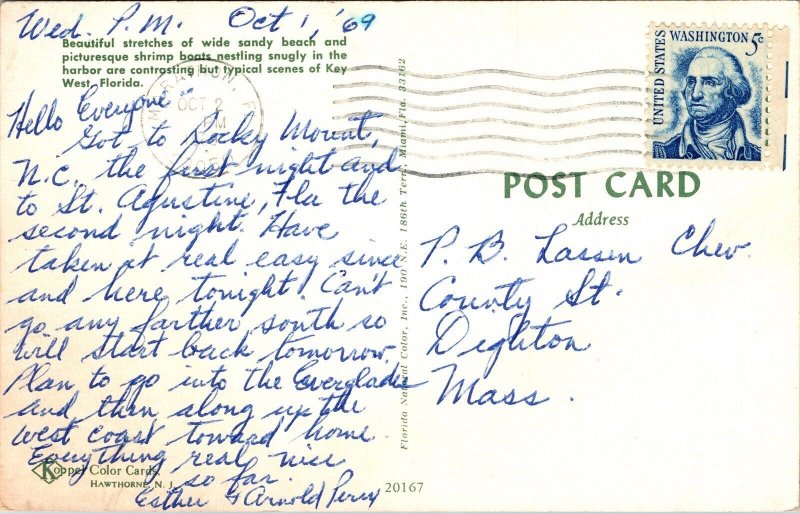 Wed. P.M. Oct 1, '69
Beautiful stretches of wide sandy beach and
picturesque shrimp boats nestling snugly in the
harbor are contrasting but typical scenes of Key
West, Florida.
Hello Everyone:
Got to Rocky Mount,
N.C. the first night and
to St. Agustine, Fla the
second night. Have
taken it real easy since
and here tonight. Can't
go any farther south so
will start back tomorrow.
Plan to go into the Everglades
and then along up the
west coast toward home.
Everything real nice
so far.
Esther & Arnold Perry
Koppel Color Cards
HAWTHORNE, N. J.
20167
Florida Natural Color, Inc., 190 N.E. 186th Terr., Miami, Fla. 33162
OCT 2
PM
UNITED STATES
WASHINGTON 5c
POST CARD
Address
P. B. Lassen Chev.
County St.
Dighton
Mass.